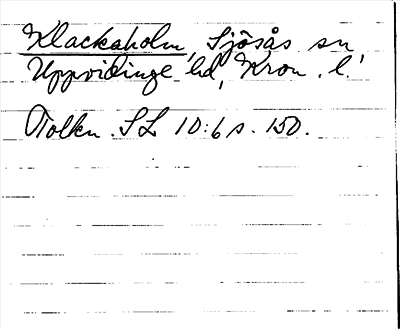 Klackaholm, Sjösås sn,
Uppvidinge hd, Kron. l.
Tolkn. SL 10:6 s. 150.